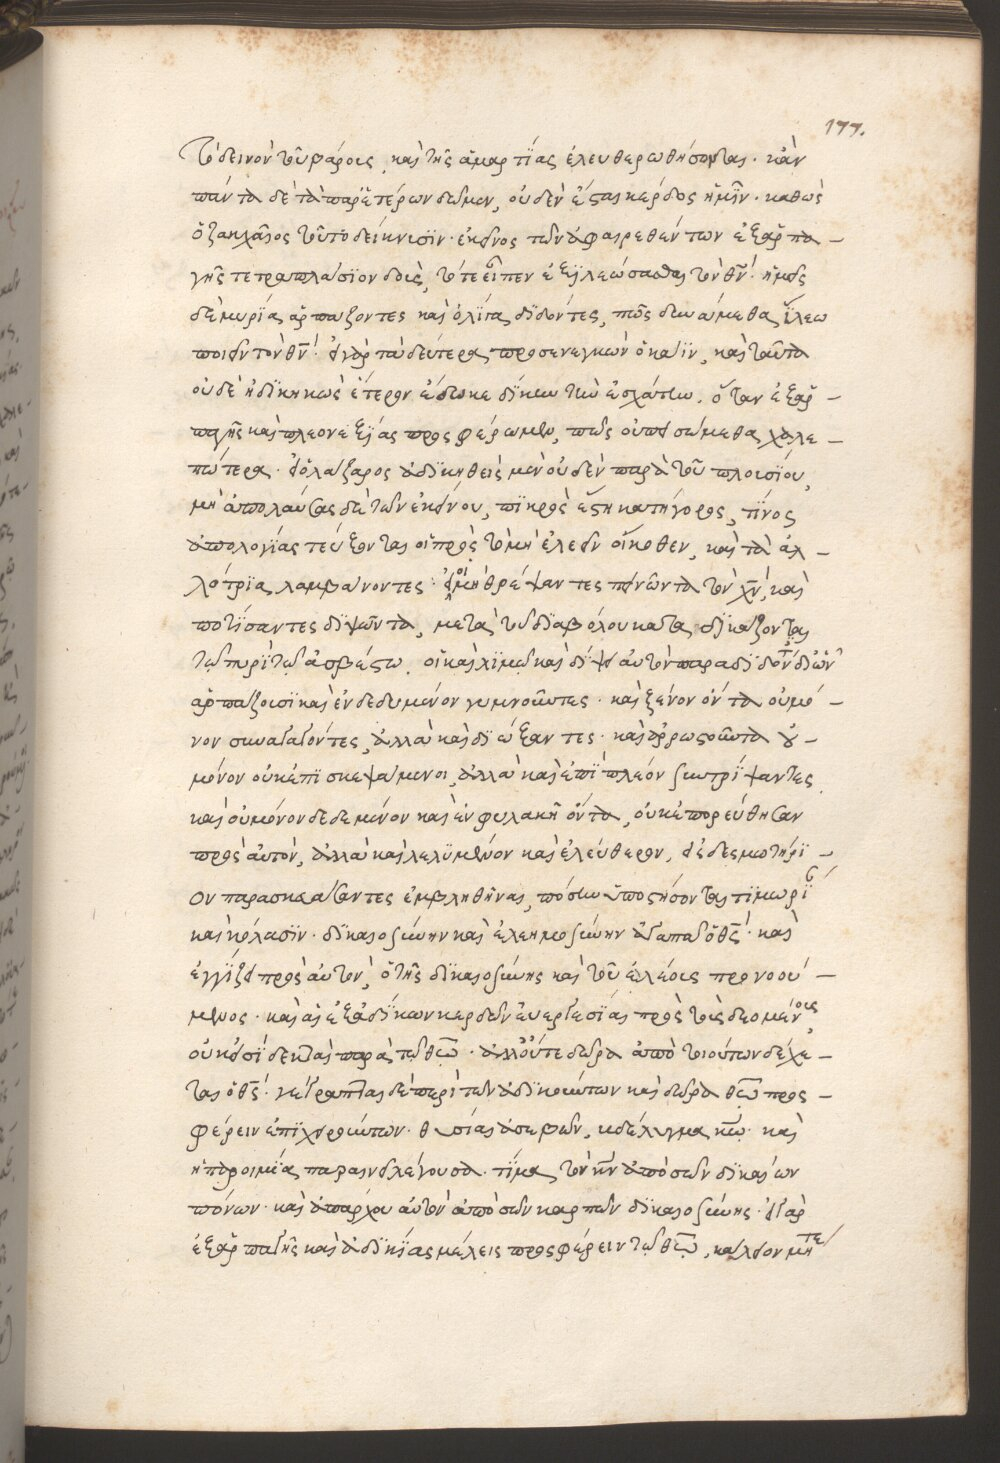 177.
τὸ δεινὸν τοῦ βάρους, καὶ τῆς ἁμαρτίας ἐλευθερωθήσονται. κἂν
πάντα δὲ τὰ παρ' ἑτέρων δῶμεν, οὐδὲν ἔσται κέρδος ἡμῖν. καθὼς
ὁ ζακχαῖος τοῦτο δείκνισϊν. ἐκεῖνος τῶν ἀφαιρεθέντων ἐξ ἁρπα –
γῆς τετραπλασίον δοὺς, τότε εἶπεν ἐξϊλεώσασθαι τὸν θν̅. ἡμεῖς
δὲ μυρία ἁρπάζοντες καὶ ὀλίγα διδόντες, πῶς δυνάμεθα ἵλεω
ποιεῖν τὸν θν̅. εἰ γὰρ τὰ δεύτερα προσενεγκὼν ὁ κάϊν, καὶ ταῦτα
οὐδὲ ἠδικηκὼς ἕτερον ἔδωκε δίκην τὴν ἐσχάτην, ὅταν ἐξ ἁρ –
παγῆς καὶ πλεονεξίας προσφέρωμεν, πῶς οὐ πεισώμεθα χαλε –
πώτερα. εἰ ὁ λάζαρος ἀδικηθεὶς μὲν οὐδὲν παρὰ τοῦ πλουσίου,
μὴ ἀπολαύσας δὲ τῶν ἐκείνου, πϊκρὸς ἔστη κατήγορος, τίνος
ἀπολογίας τεύξονται οἱ πρὸς τὸ μὴ ἐλεεῖν οἴκοθεν, καὶ τὰ ἀλ –
λότρια λαμβάνοντες. εἰ οἱ μὴ θρέψαντες πεινῶντα τὸν χν̅, καὶ
ποτίσαντες διψῶντα, μετὰ τοῦ διαβόλου καταδικάζονται
τῷ πυρὶ τῷ ἀσβέστῳ. οἱ καὶ λϊμῷ καὶ δίψει αὐτὸν παραδιδόντες δι' ὧν
ἁρπάζουσι καὶ ἐνδεδυμένον γυμνοῦντες. καὶ ξένον ὄντα οὐ μό –
νον συναγαγόντες, ἀλλὰ καὶ διώξαντες. καὶ ἀρρωστοῦντα οὐ –
μόνον οὐκ ἐπισκεψάμενοι, ἀλλὰ καὶ ἐπὶ πλέον συντρίψαντες
καὶ οὐ μόνον δεδεμένον καὶ ἐν φυλακῇ ὄντα, οὐκ ἐπορεύθησαν
πρὸς αὐτὸν, ἀλλὰ καὶ λελϋμένον καὶ ἐλεύθερον, εἰς δεσμωτήρι –
ον παρασκευάσαντες ἐμβληθῆναι, πόσην ὑποστήσονται τιμωρί
καὶ κόλασϊν. δικαιοσύνην καὶ ἐλεημοσύνην ἀγαπᾷ ὁ θς̅. καὶ
ἐγγίζει πρὸς αὐτὸν, ὁ τῆς δικαιοσύνης καὶ τοῦ ἐλέους προνοού –
μενος. καὶ αἱ ἐξ ἀδίκων κερδῶν ἐυεργεσίας πρὸς τοὺς δεομένους
οὐκ εἰσὶ δεκταὶ παρὰ τῷ θεῷ. ἀλλ' οὔτε δῶρα ἀπὸ τοιούτων δέχε –
ται ὁ θς̅. γέγραπται δὲ περὶ τῶν ἀδικούντων καὶ δῶρα θεῷ προς –
φέρειν ἐπιχειρούντων. θυσίαι ἀσεβῶν, βδέλυγμα κω̅. καὶ
ἡ παροιμία παραινεῖ λέγουσα. τίμα τὸν κν̅ ἀπὸ σῶν δικαίων
πόνων. καὶ ἀπάρχου αὐτὸν ἀπὸ σῶν καρπῶν δικαιοσύνης. εἰ γὰρ
ἐξ ἁρπαγῆς καὶ ἀδικίας μέλεις προσφέρειν τῷ θεῷ, κάλλιον μήτε